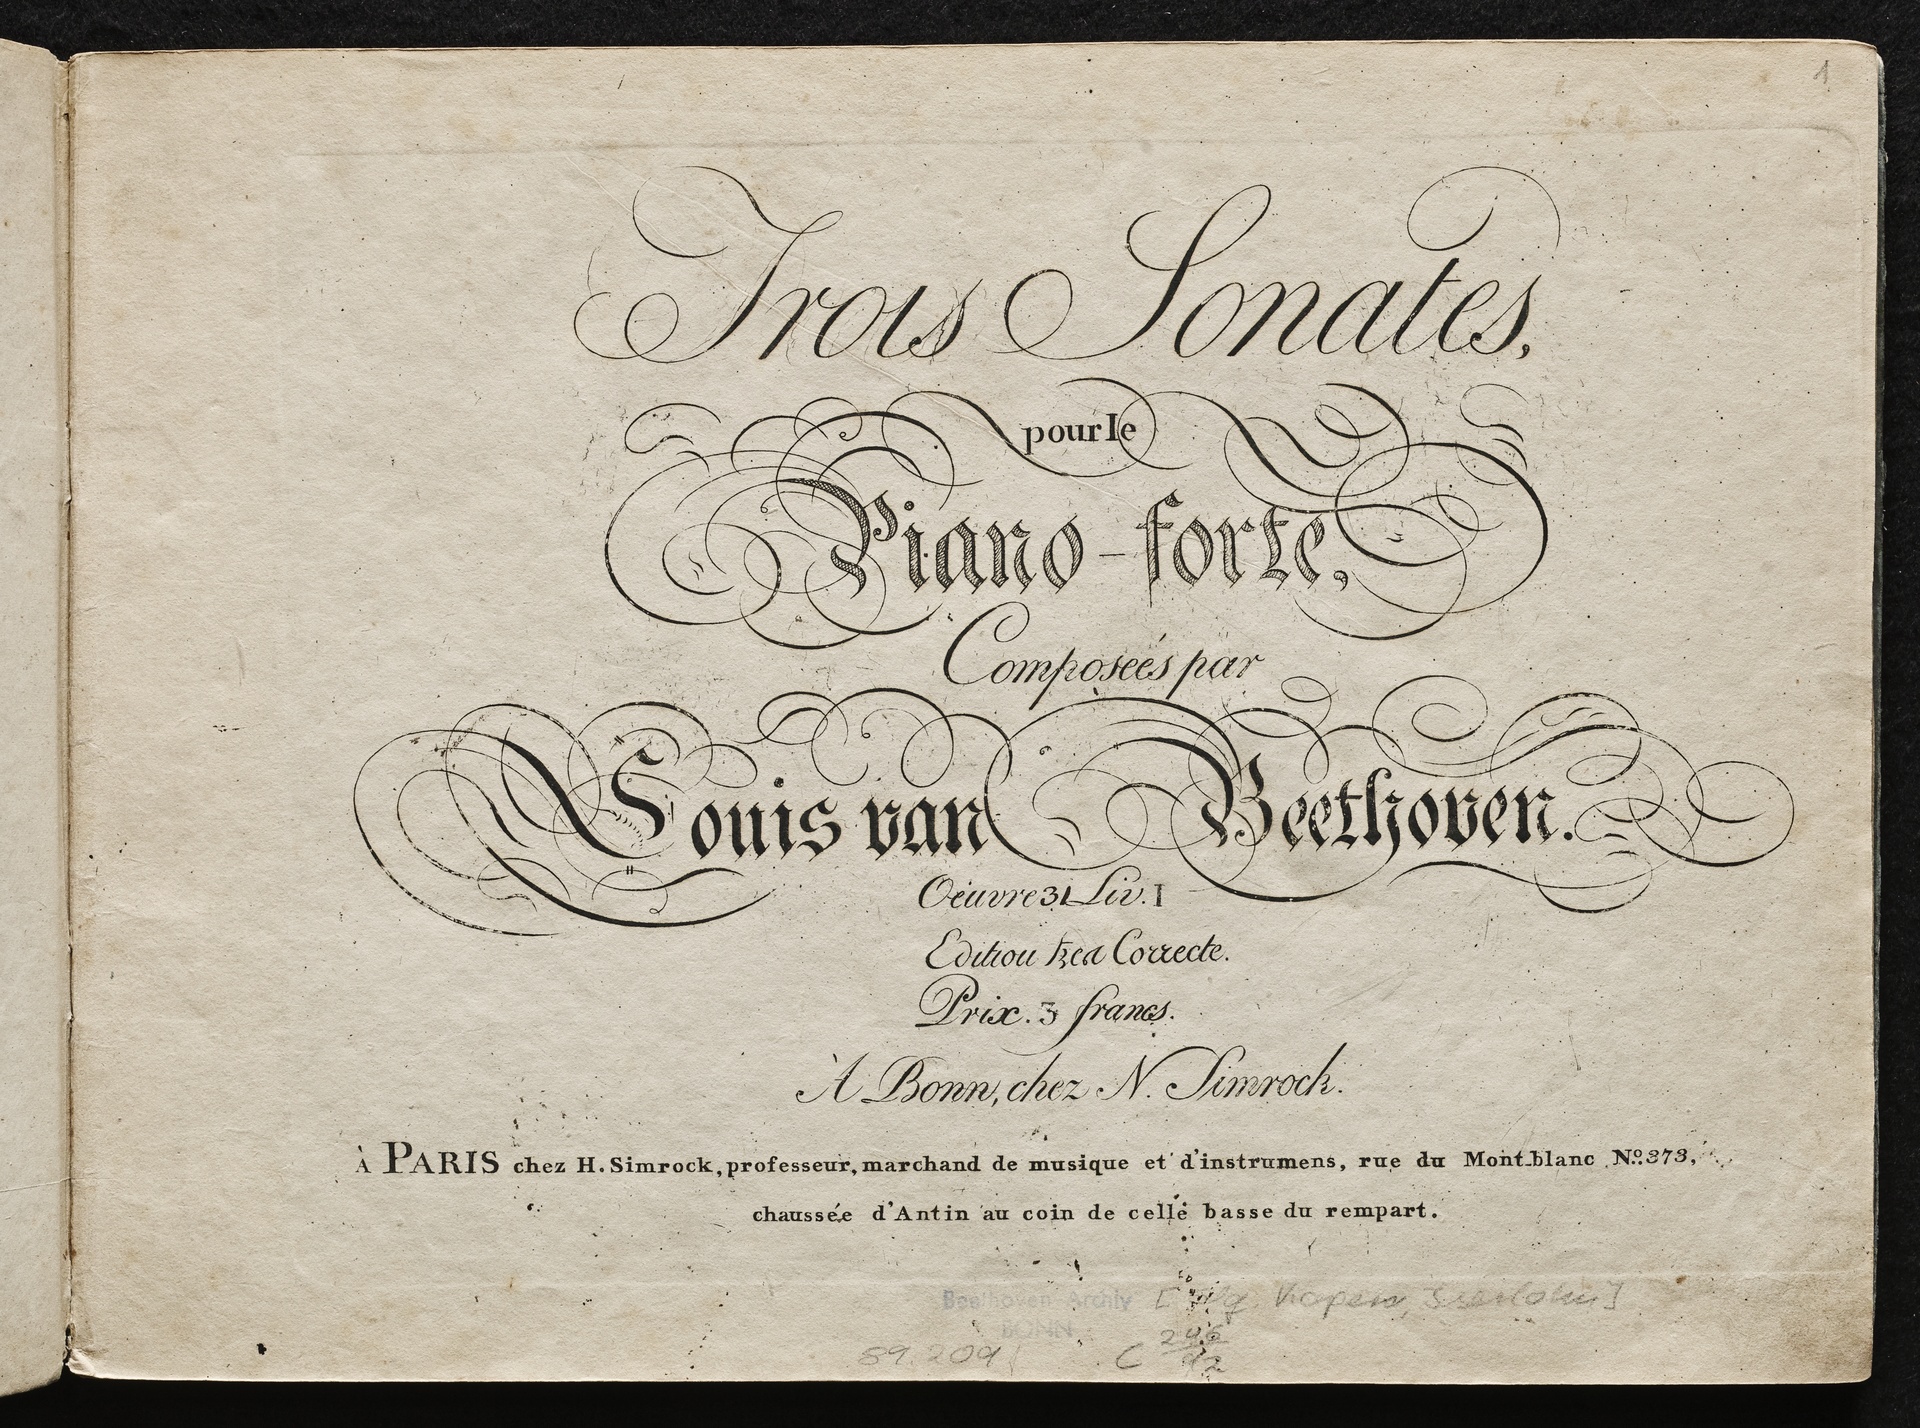 1
Trois Sonates,
pour le
Piano-forte,
Composeés par
Louis van Beethoven.
Oeuvre 31 Liv. I
Edition tres Correcte.
Prix. 3 francs.
À Bonn, chez N. Simrock.
à PARIS chez H. Simrock, professeur, marchand de musique et d'instrumens, rue du Mont-blanc Nº. 373,
chaussée d'Antin au coin de celle basse du rempart.
Beethoven Archiv
BONN
59.209
C 246/92